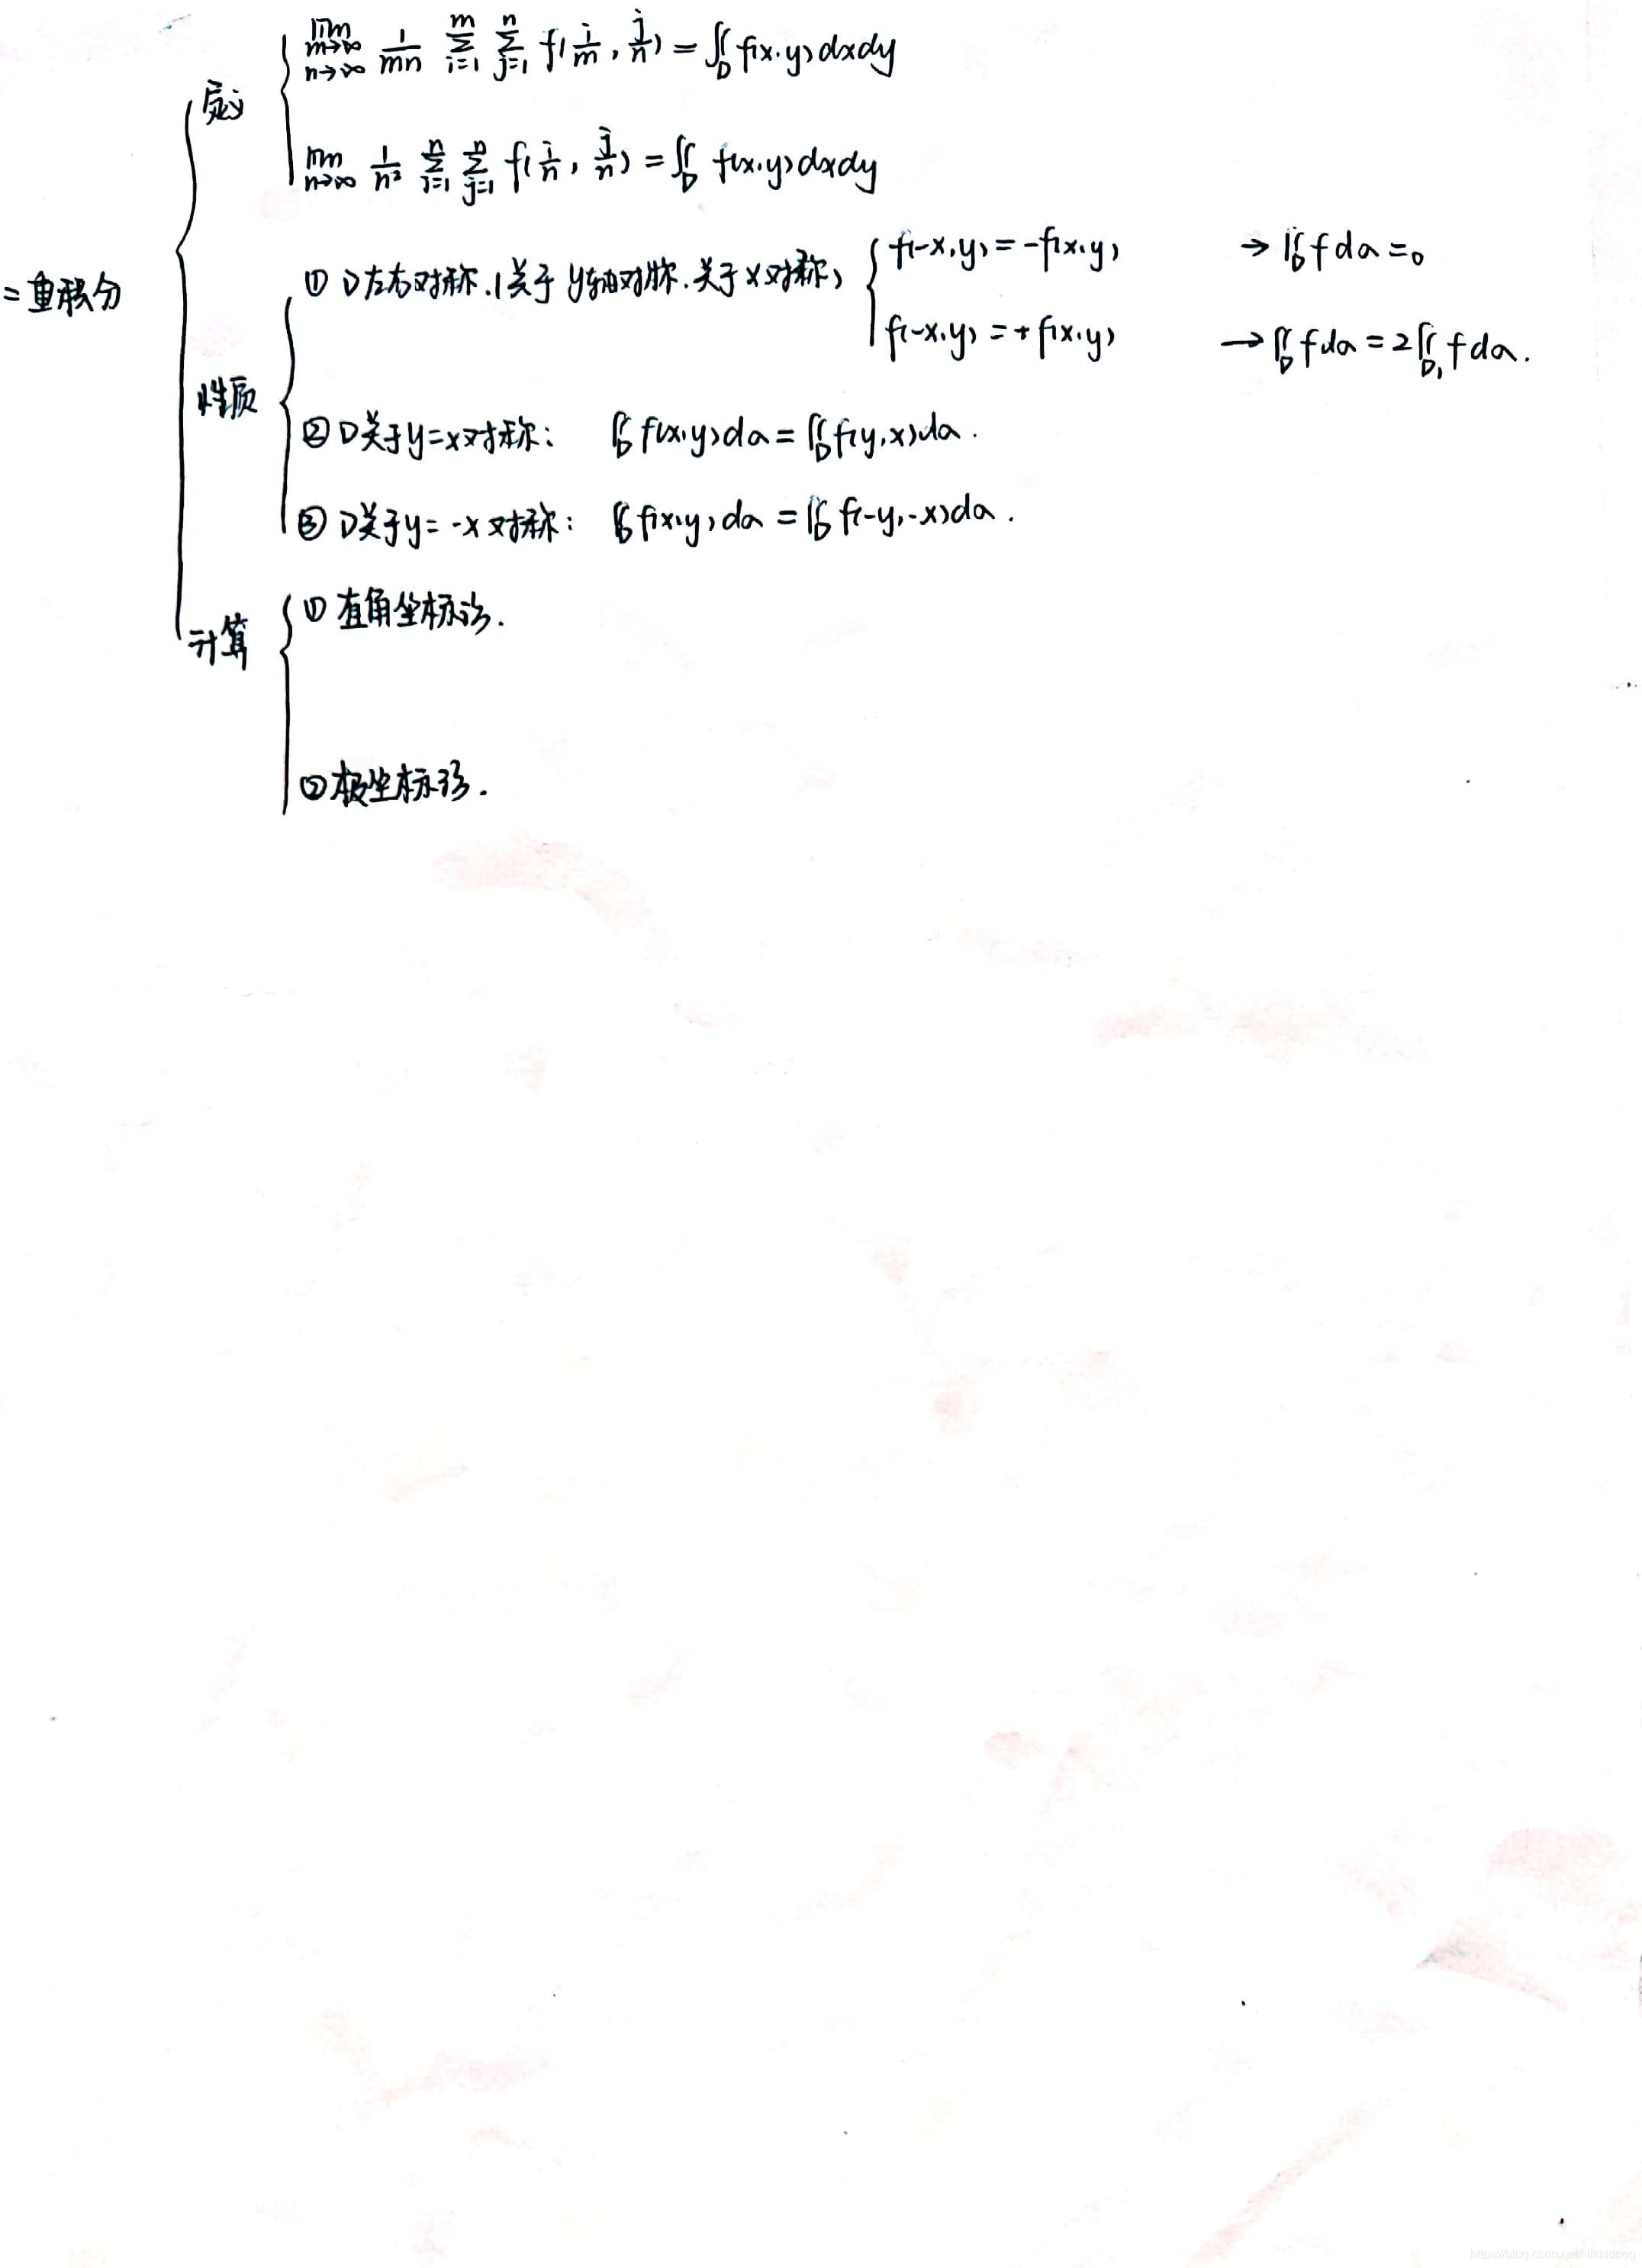 二重积分
定义
lim m→∞ n→∞ 1/mn Σ_{i=1}^{m} Σ_{j=1}^{n} f(i/m, j/n) = ∬_D f(x,y)dxdy
lim n→∞ 1/n² Σ_{i=1}^{n} Σ_{j=1}^{n} f(i/n, j/n) = ∬_D f(x,y)dxdy
性质
① D左右对称.(关于y轴对称.关于x对称)
f(-x,y)=-f(x,y) → ∬_D f dσ=0
f(-x,y)=+f(x,y) → ∬_D f dσ=2∬_{D₁} f dσ.
② D关于y=x对称: ∬_D f(x,y)dσ=∬_D f(y,x)dσ.
③ D关于y=-x对称: ∬_D f(x,y)dσ=∬_D f(-y,-x)dσ.
计算
① 直角坐标法.
② 极坐标法.
https://blog.csdn.net/Nikkiddog